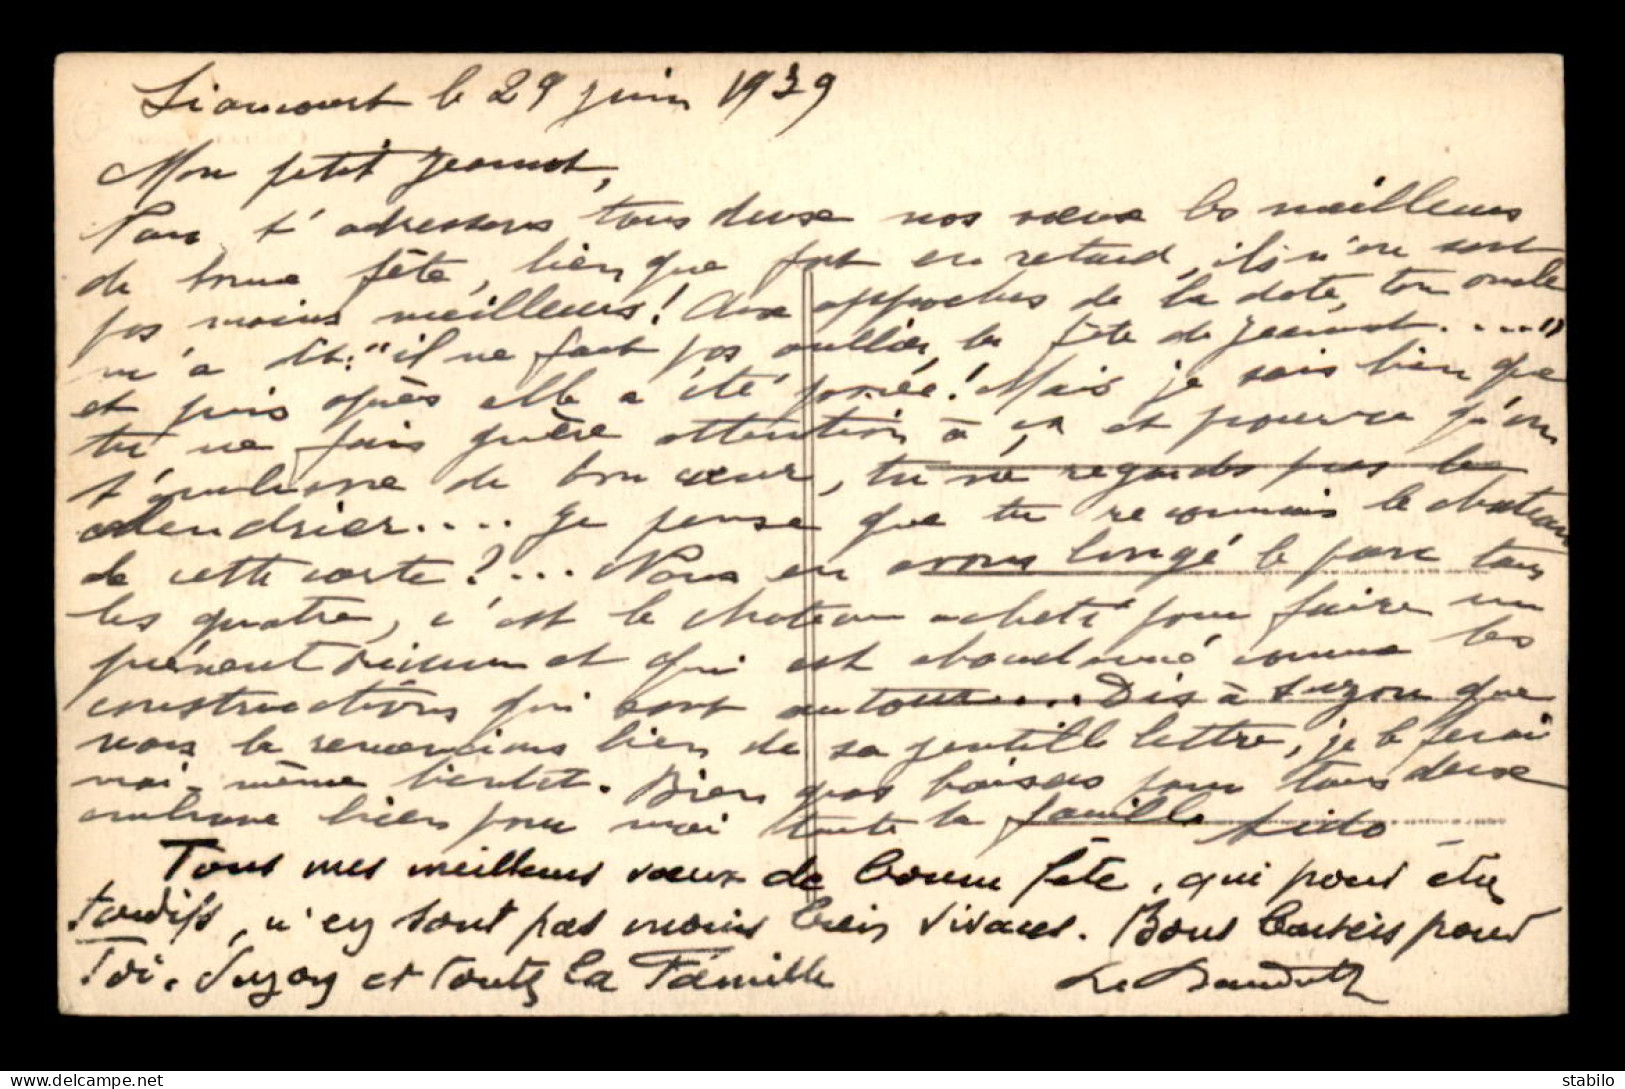 Liancourt le 29 juin 1939
Mon petit Jeannot,
Nous t'adressons tous deux nos vœux les meilleurs
de bonne fête, bien que fort en retard, ils n'en sont
pas moins meilleurs! Aux approches de la date, ton oncle
m'a dit: "il ne faut pas oublier la fête de Jeannot....."
et puis après elle a été passée! Mais je sais bien que
tu ne fais guère attention à ça et pourvu qu'on
t'embrasse de bon cœur, tu ne regardes pas le
calendrier.... Je pense que tu reconnais le château
de cette carte?... Nous en avons longé le parc tous
les quatre, c'est le château acheté pour faire un
et qui est abandonné comme les
constructions qui sont autour.... Dis à Suzon que
nous la remercions bien de sa gentille lettre, je le ferai
moi-même bientôt. Bien gros baisers pour tous deux
embrasse bien pour moi toute la famille
Tous mes meilleurs vœux de bonne fête, qui pour être
tardifs, n'en sont pas moins bien vivaces. Bons baisers pour
Toi, Suzon et toute la Famille
stabilo